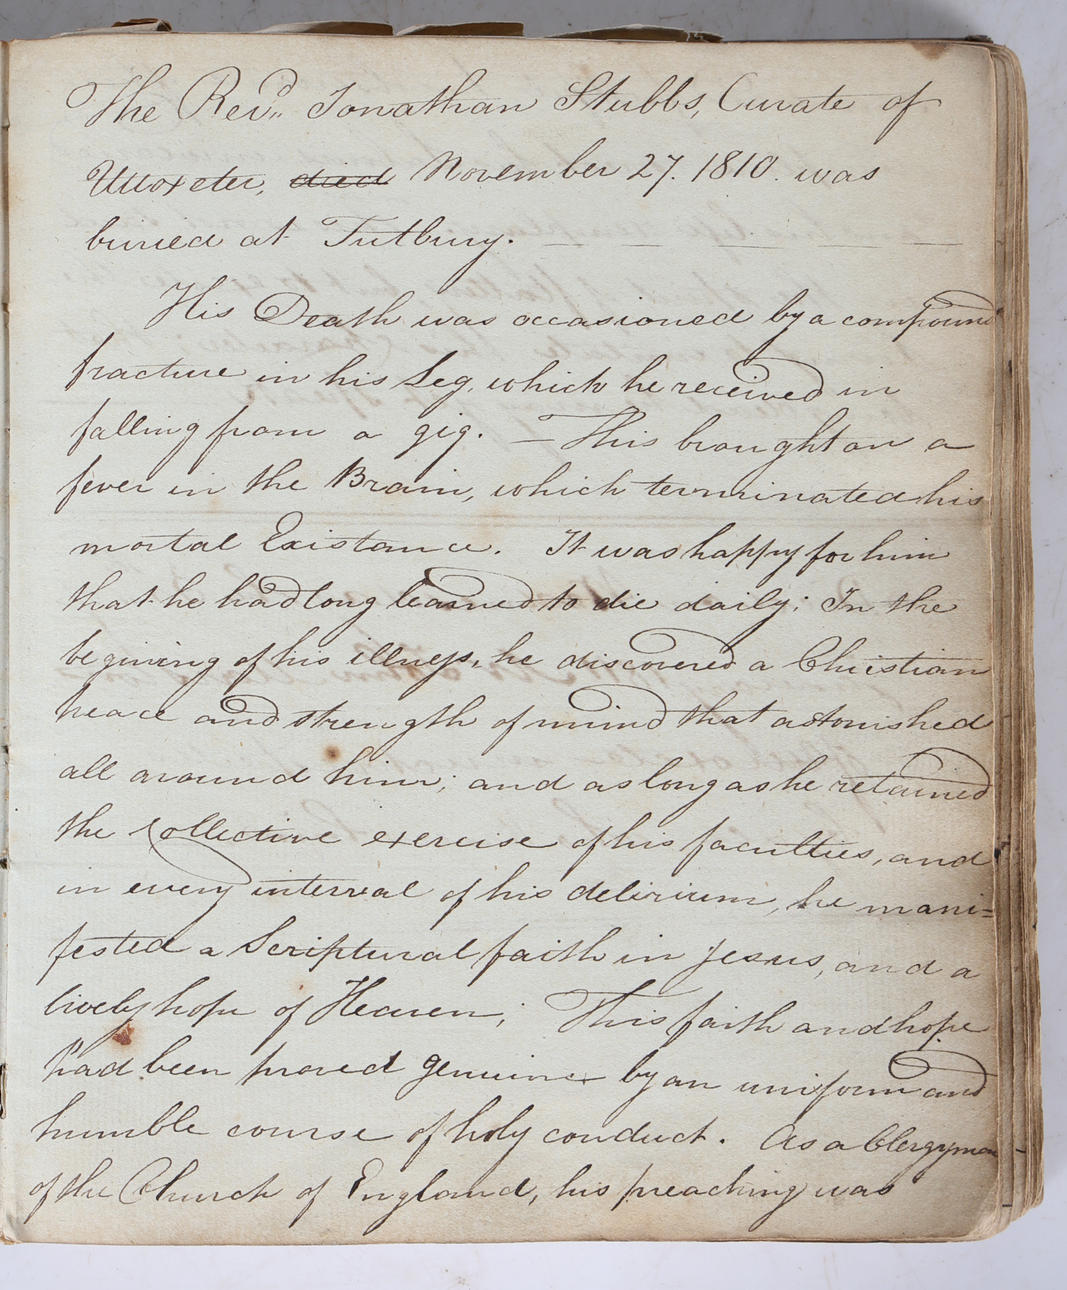 The Revd. Jonathan Stubbs, Curate of
Uttoxeter, died November 27. 1810. was
buried at Tutbury.
His Death was occasioned by a compound
fracture in his Leg, which he received in
falling from a gig. — This brought on a
fever in the Brain, which terminated his
mortal Existance. It was happy for him
that he had long learned to die daily; In the
begining of his illness, he discovered a Christian
peace and strength of mind that astonished
all around him; and as long as he retained
the collective exercise of his faculties, and
in every interval of his delirium, he mani=
fested a Scriptural faith in Jesus, and a
lively hope of Heaven; This faith and hope
had been proved genuine by an uniform and
humble course of holy conduct. As a Clergyman
of the Church of England, his preaching was